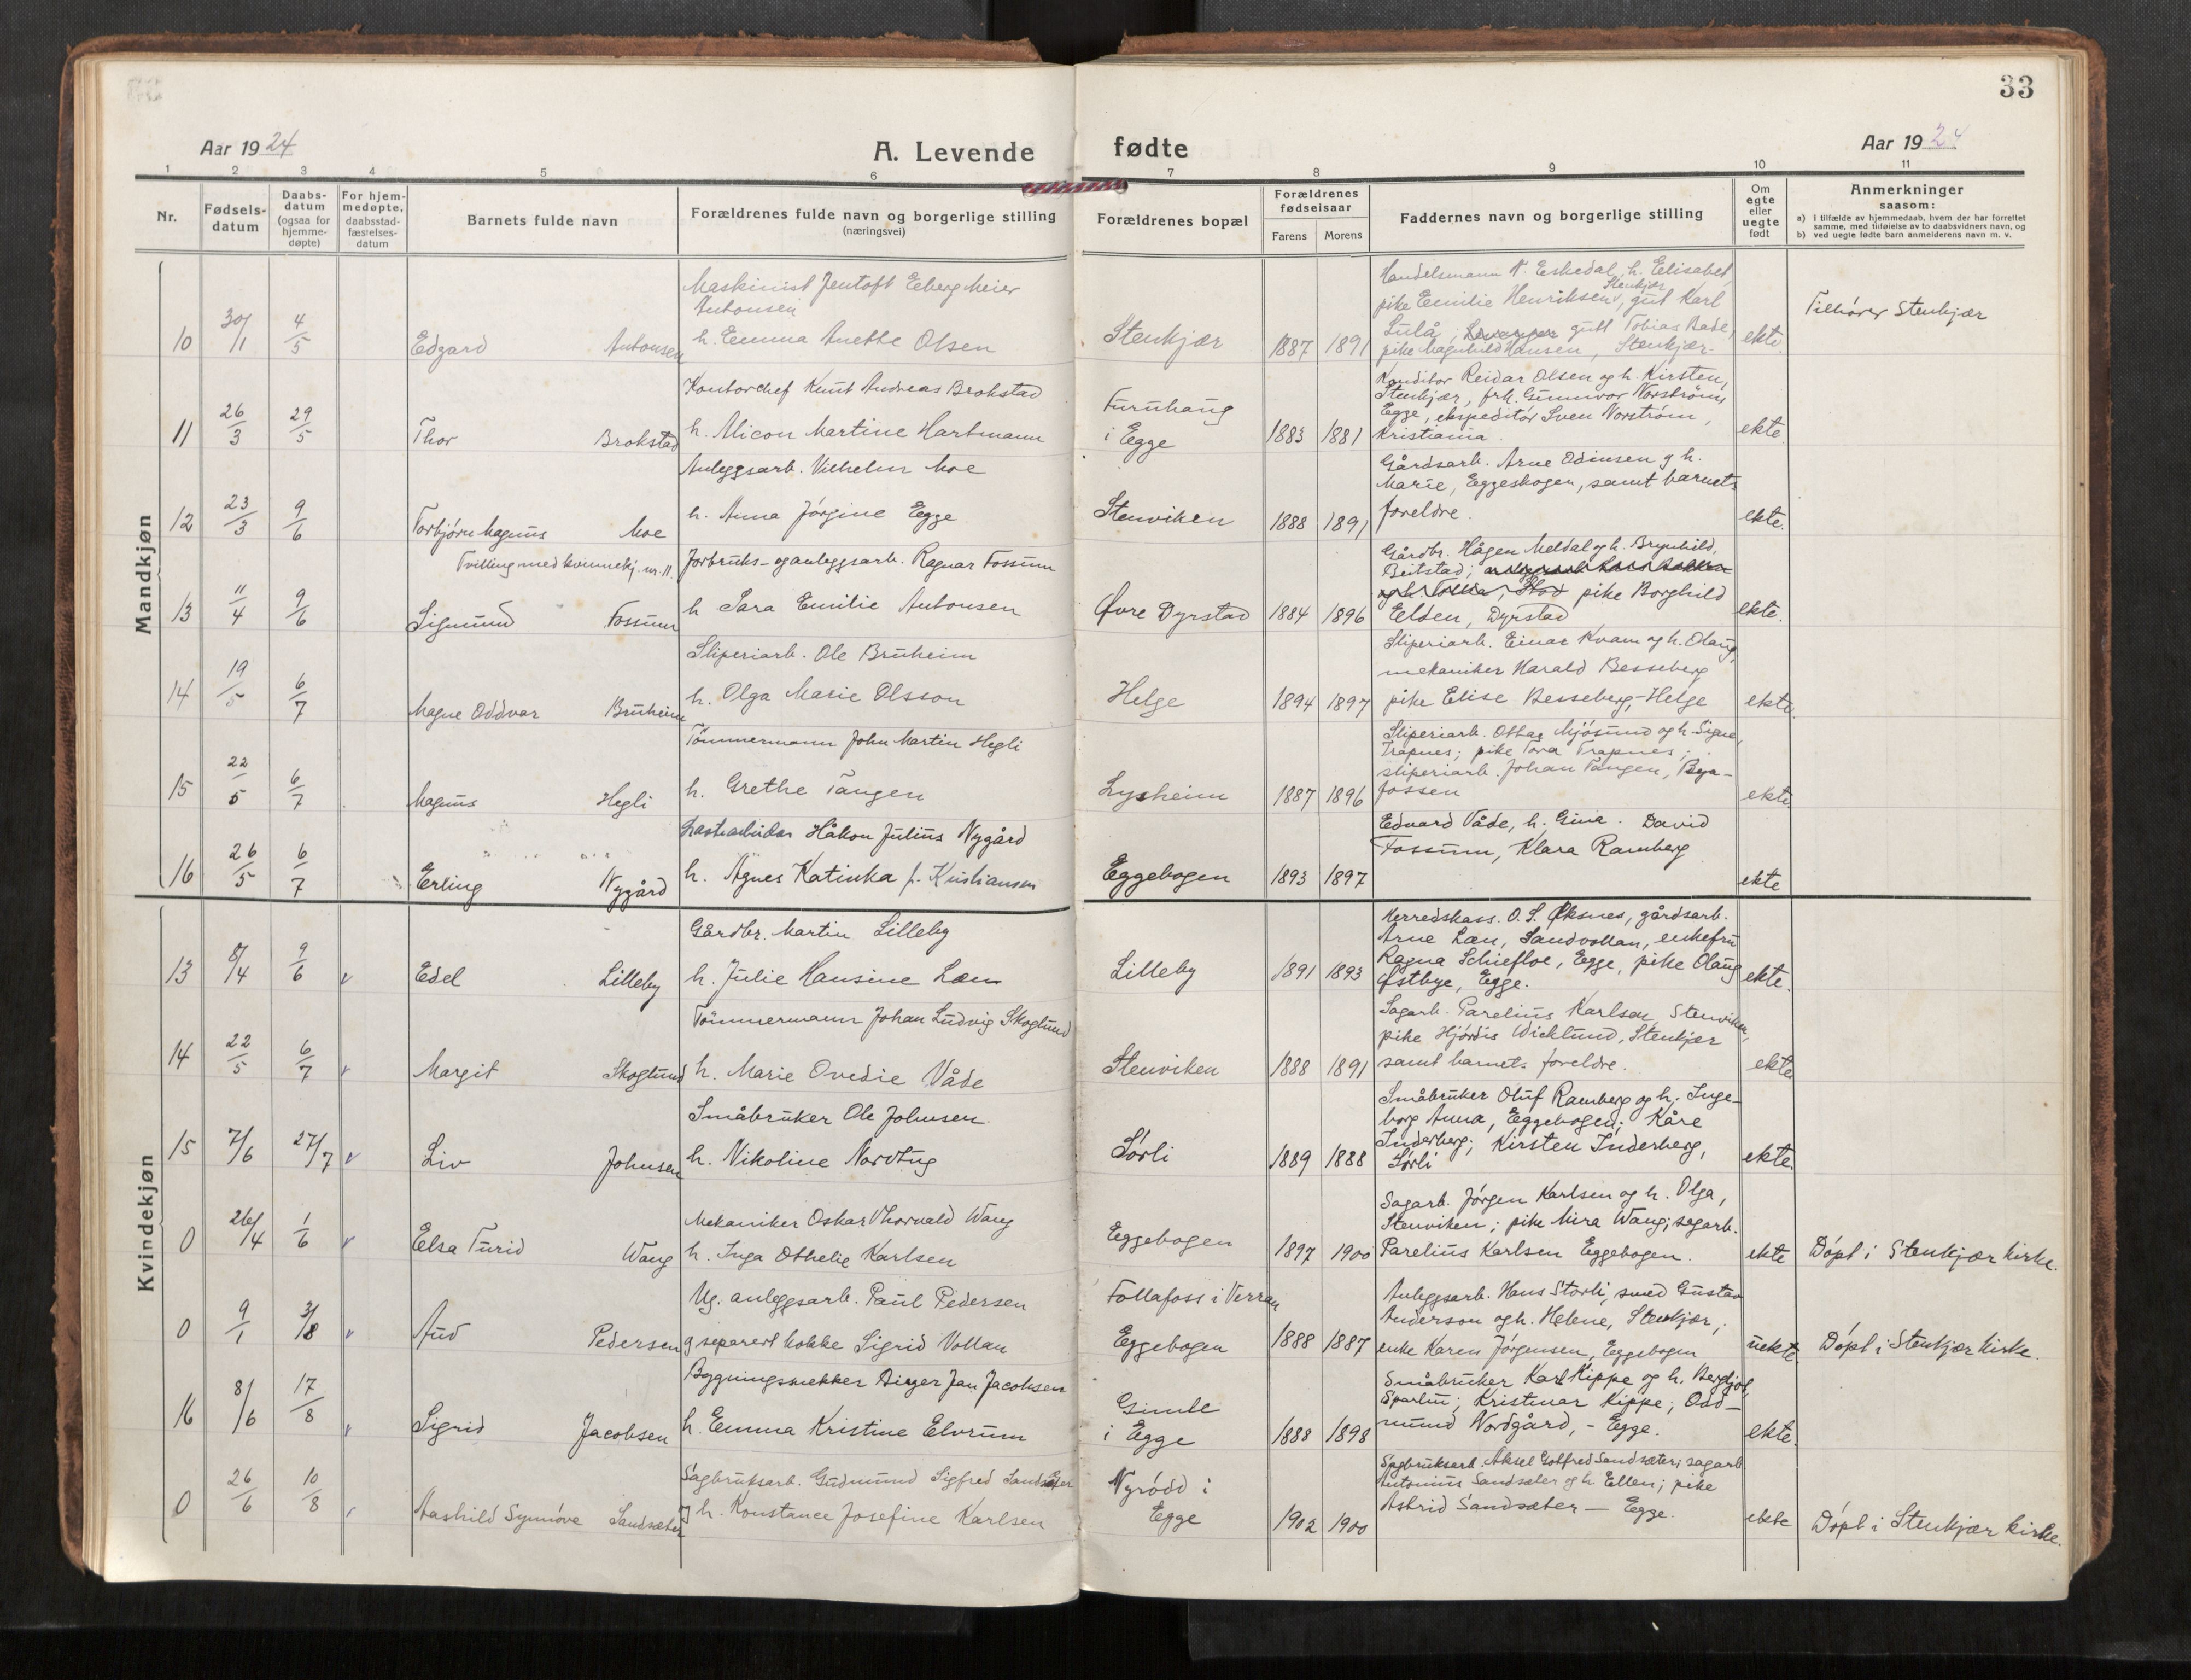 33
Aar 1924
A. Levende
fødte
Aar 1924
1 2 3 4 5 6 7 8 9 10 11
Nr.
Fødsels-
datum
Daabs-
datum
(ogsaa for
hjemme-
døpte)
For hjem-
medøpte,
daabsstad-
fæstelses-
datum
Barnets fulde navn
Forældrenes fulde navn og borgerlige stilling
(næringsvei)
Forældrenes bopæl
Forældrenes
fødselsaar
Farens Morens
Faddernes navn og borgerlige stilling
Om
egte
eller
uegte
født
Anmerkninger
saasom:
a) i tilfælde av hjemmedaab, hvem der har forrettet
samme, med tilføielse av to daabsvidners navn, og
b) ved uegte fødte barn anmelderens navn m. v.
Mandkjøn
10 30/1 4/5 Edgard Antonsen
Maskinist Jentoft Eeberg Meier
Antonsen
h. Emma Anette Olsen
Stenkjær 1887 1891
Handelsmann N. Eskedal, h. Elisabet,
Stenkjær
pike Emilie Henriksen, gut Karl
Lulå, gutt Tobias Bade,
pike Magnhild Hansen, Stenkjær.
ekte
Tilhører Stenkjær
11 26/3 29/5 Thor Brokstad
Kontorchef Knut Andreas Brokstad
h. Alicon Martine Hartmann
Furuhaug
i Egge
1883 1881
Konditor Reidar Olsen og h. Kirsten,
Stenkjær, frk. Gunnvor Norstrøm,
Egge, ekspeditør Sven Norstrøm,
Kristiania.
ekte
12 23/3 9/6 Torbjørn Magnus Moe
Tvilling med kvinnekj. nr. 11.
Anleggsarb. Vilhelm Moe
h. Anna Jørgine Egge
Stenviken 1888 1891
Gårdsarb. Arne Odinsen og h.
Marie, Eggeskogen, samt barnets
foreldre.
ekte.
13 11/4 9/6 Sigmund Fossum
Jorbruks- og anleggsarb. Ragnar Fossum
h Sara Emilie Antonsen
Øvre Dyrstad 1884 1896
Gårdbr. Hågen Meldal og h. Brynhild,
Beitstad;
pike Borghild
Elden, Dyrstad
ekte.
14 19/5 6/7 Magne Oddvar Bruheim
Sliperiarb. Ole Bruheim
h. Olga Marie Olsson
Helge 1894 1897
Sliperiarb. Einar Kvam og h. Olaug,
mekaniker Harald Besseberg
pike Elise Besseberg, - Helge
ekte.
15 22/5 6/7 Magnus Hegli
Tömmermann John Martin Hegli
h. Grethe Tangen
Lysheim 1887 1896
Sliperiarb. Ottar Mjøsund og h. Signe,
Trapnes; pike Tora Trapnes;
sliperiarb. Johan Tangen, Bya-
fossen
ekte
16 26/5 6/7 Erling Nygård
Lastarbeider Håkon Julius Nygård
h. Agnes Katinka f. Kristiansen
Eggebogen 1893 1897
Edvard Våde, h. Gina. David
Fossum, Klara Ramberg
ekte
Kvindekjøn
13 8/4 9/6 v Edel Lilleby
Gårdbr. Martin Lilleby
h. Julie Hansine Læn
Lilleby 1891 1893
Herredskass. O. S. Øksnes, gårdsarb.
Arne Læn, Sandvollan, enkefru
Ragna Schiefloe, Egge, pike Olaug
Østbye, Egge.
ekte.
14 22/5 6/7 v Margit Skoglund
Tömmermann Johan Ludvig Skoglund
h. Marie Ovedie Våde
Stenviken 1888 1891
Sagarb. Parelius Karlsen, Stenviken,
pike Hjørdis Wicklund, Stenkjær
samt barnets foreldre.
ekte
15 7/6 27/7 v Liv Johnsen
Småbruker Ole Johnsen.
h. Nikoline Nordtug
Sørli 1889 1888
Småbruker Oluf Ramberg og h. Inge-
borg Anna, Eggebogen; Kåre
Inderberg; Kirsten Inderberg,
Sørli
ekte.
0 26/4 1/6 v Elsa Turid Wang
Mekaniker Oskar Thorvald Wang
h. Inga Othelie Karlsen
Eggebogen 1897 1900
Sagarb. Jørgen Karlsen og h. Olga,
Stenviken; pike Mira Wang; sagarb.
Parelius Karlsen Eggebogen.
ekte
Døpt i Stenkjær kirke.
0 9/1 3/8 v Aud Pedersen
Ug. anleggsarb. Paul Pedersen
og separert kokke Sigrid Vollan
Follafoss i Verran
Eggebogen
1888 1887
Anleggsarb. Hans Storli, smed Gustav
Anderson og h. Helene, Stenkjær;
enke Karen Jørgensen, Eggebogen
uekte
Døpt i Stenkjær kirke.
16 8/6 17/8 v Sigrid Jacobsen
Bygningssnekker Birger Jan Jacobsen
h. Emma Kristine Elvrum
Gimle
i Egge
1888 1898
Småbruker Karl Kippe og h. Bergljot,
Sparbu; Kristmar Kippe; Odd-
mund Nordgård, - Egge.
ekte.
0 26/6 10/8 Aashild Synnøve Sandsæter
Sagbruksarb. Gudmund Sigfred Sandsæter
og h. Konstance Josefine Karlsen
Nyrødd i
Egge
1902 1900
Sagbruksarb. Aksel Gotfred Sandsæter; sagarb
Antonius Sandsæter og h. Ellen; pike
Astrid Sandsæter — Egge.
ekte
Døpt i Stenkjær kirke.